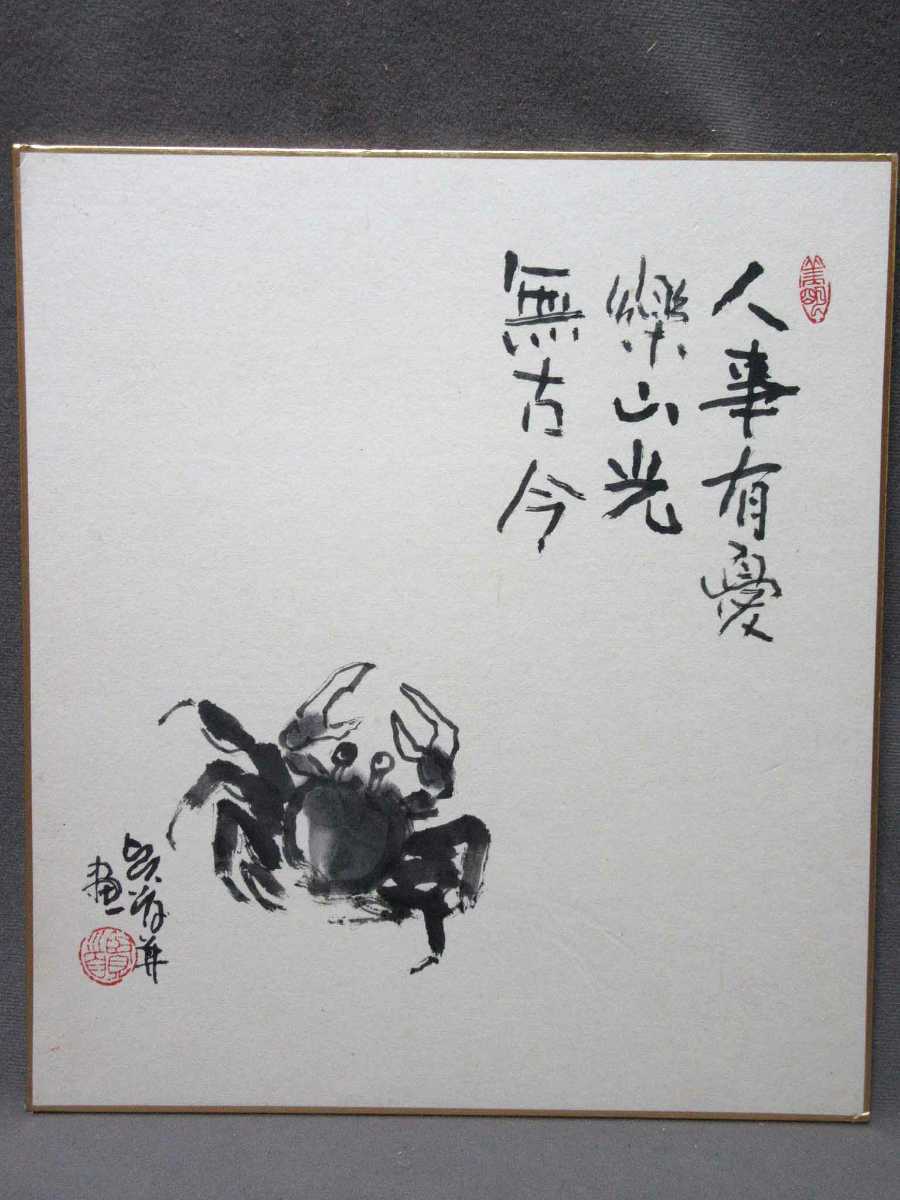 人事有憂
樂山光
無古今
画